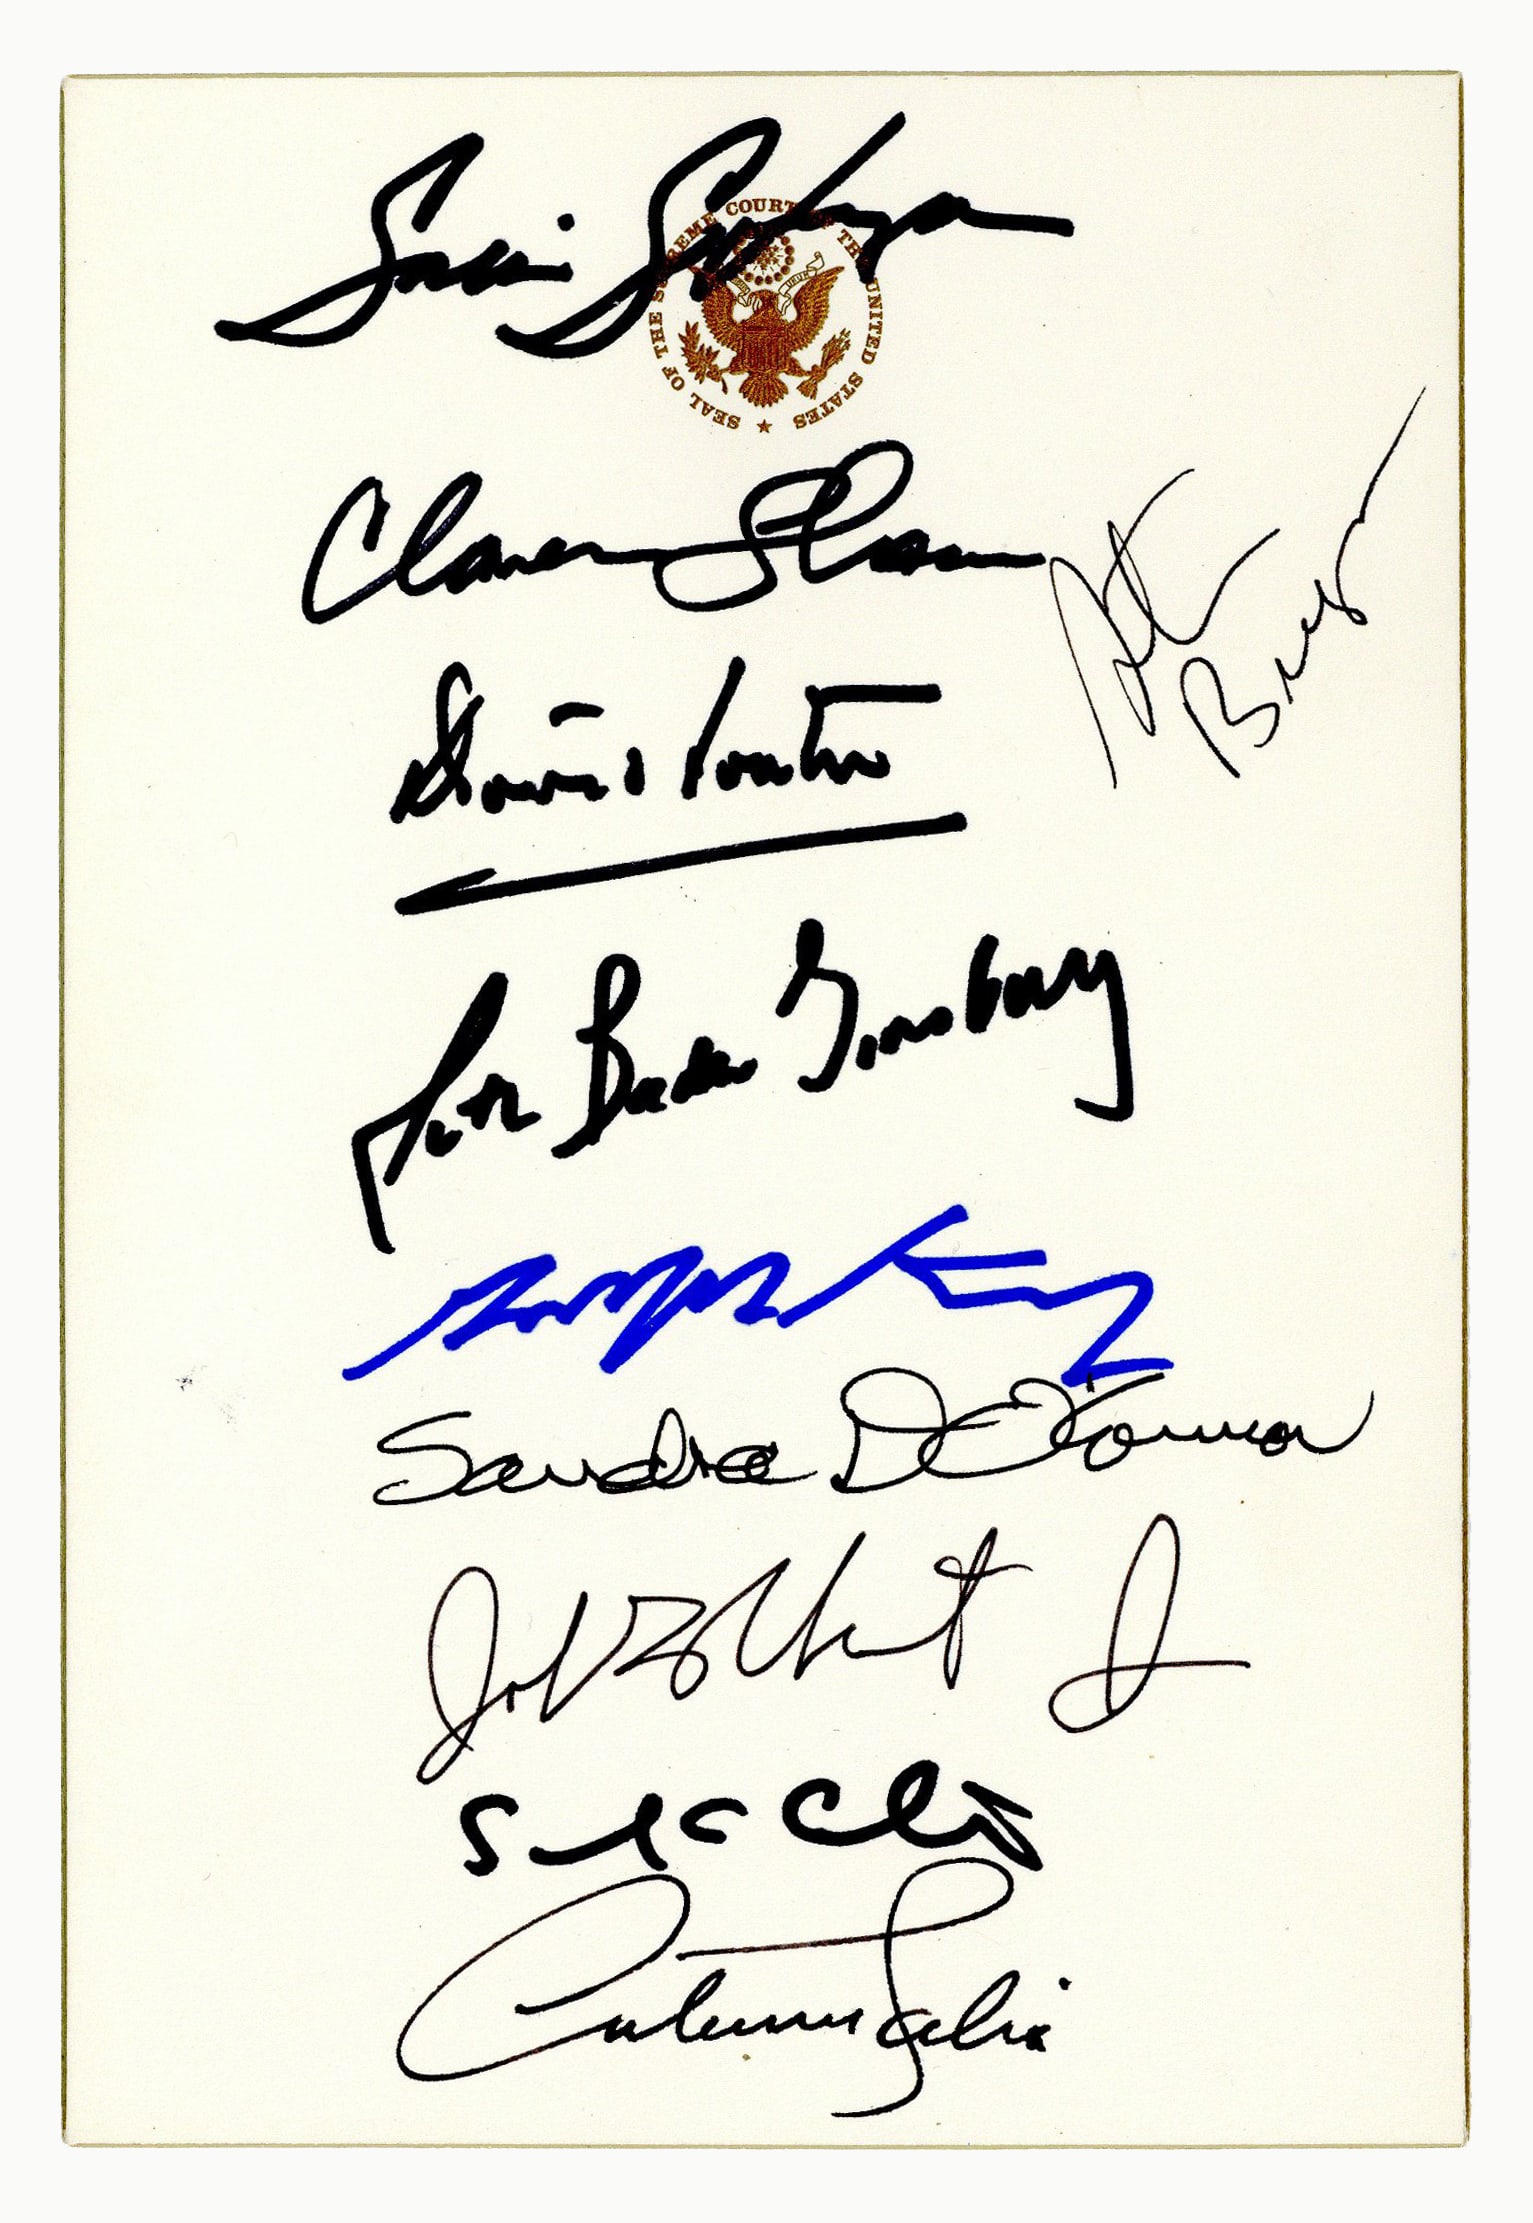 Sonia Sotomayor
SEAL OF THE SUPREME COURT OF THE UNITED STATES
Clarence Thomas
Stephen
Breyer
David Souter
Ruth Bader Ginsburg
Anthony Kennedy
Sandra D O'Connor
John G. Roberts Jr
Antonin Scalia